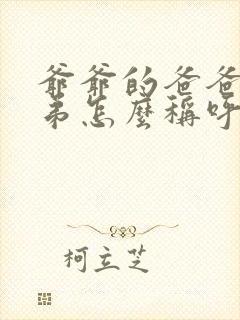 爺爺的爸爸
弟怎麼稱呼
柯立芝